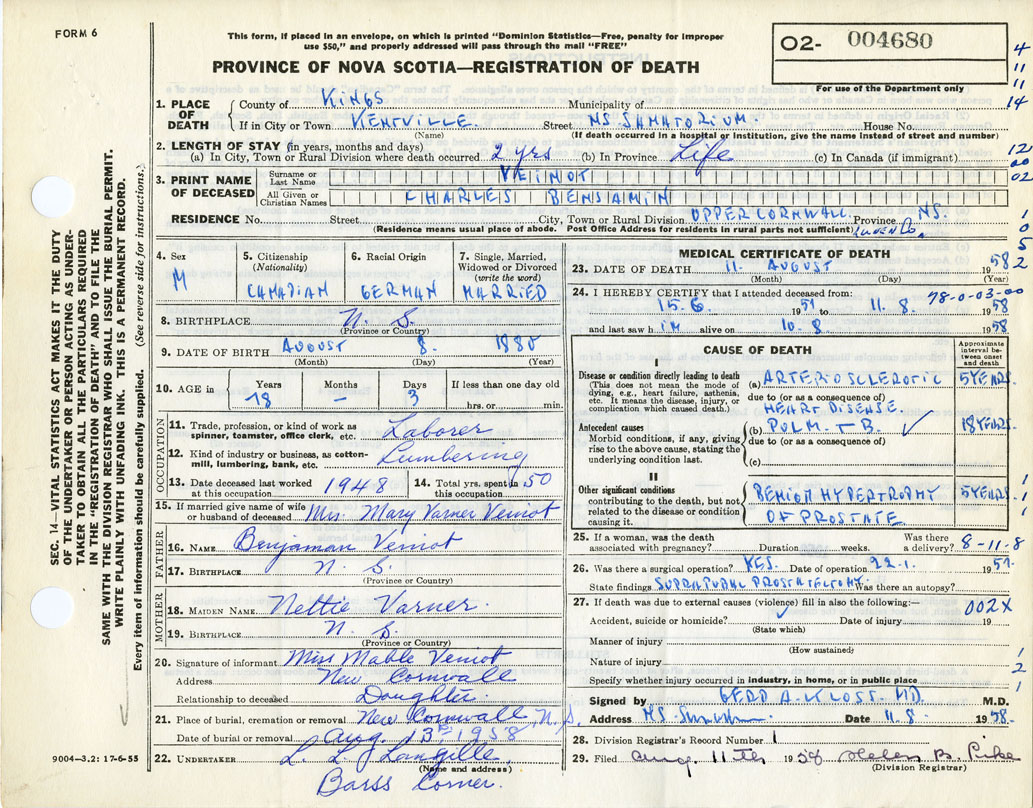 FORM 6
This form, if placed in an envelope, on which is printed "Dominion Statistics—Free, penalty for improper
use $50," and properly addressed will pass through the mail "FREE"
PROVINCE OF NOVA SCOTIA—REGISTRATION OF DEATH
O2- 004680
For use of the Department only
4
11
11
14
1. PLACE OF DEATH
County of Kings Municipality of
If in City or Town Kentville Street NS Sanatorium. House No.
(Name) (If death occurred in a hospital or institution, give the name instead of street and number)
2. LENGTH OF STAY (in years, months and days)
(a) In City, Town or Rural Division where death occurred 2 yrs (b) In Province Life (c) In Canada (if immigrant)
12
00
02
3. PRINT NAME OF DECEASED
Surname or Last Name VEINOT
All Given or Christian Names CHARLES BENJAMIN
RESIDENCE No. Street City, Town or Rural Division UPPER CORNWALL Province NS.
(Residence means usual place of abode. Post Office Address for residents in rural parts not sufficient) Lunen Co.
1
0
5
2
4. Sex
M
5. Citizenship
(Nationality)
CANADIAN
6. Racial Origin
GERMAN
7. Single, Married,
Widowed or Divorced
(write the word)
MARRIED
8. BIRTHPLACE N. S.
(Province or Country)
9. DATE OF BIRTH AUGUST 8. 1880
(Month) (Day) (Year)
10. AGE in Years Months Days If less than one day old
78 — 3 hrs. or min.
OCCUPATION
11. Trade, profession, or kind of work as
spinner, teamster, office clerk, etc. Laborer
12. Kind of industry or business, as cotton-
mill, lumbering, bank, etc. Lumbering
13. Date deceased last worked
at this occupation 1948
14. Total yrs. spent in
this occupation 50
15. If married give name of wife
or husband of deceased Mrs. Mary Varner Veniot
FATHER
16. NAME Benjaman Veniot
17. BIRTHPLACE N. S.
(Province or Country)
MOTHER
18. MAIDEN NAME Nettie Varner.
19. BIRTHPLACE N. S.
(Province or Country)
20. Signature of informant Miss Mable Veniot
Address New Cornwall
Relationship to deceased Doughter
21. Place of burial, cremation or removal New Cornwall, N. S.
Date of burial or removal Aug. 13th 1958
22. UNDERTAKER L. L. Langille,
(Name and address)
Barss Corner.
MEDICAL CERTIFICATE OF DEATH
23. DATE OF DEATH 11. AUGUST 1958
(Month) (Day) (Year)
24. I HEREBY CERTIFY that I attended deceased from: 78-0-03-00
15.6. 19 to 11.8. 1958
and last saw him alive on 10.8 1958
CAUSE OF DEATH
Approximate
interval be-
tween onset
and death
I
Disease or condition directly leading to death
(This does not mean the mode of
dying, e.g., heart failure, asthenia,
etc. It means the disease, injury, or
complication which caused death.)
(a) ARTERIOSCLEROTIC 5 YEARS.
due to (or as a consequence of)
HEART DISEASE.
Antecedent causes
Morbid conditions, if any, giving
rise to the above cause, stating the
underlying condition last.
(b) PULM. TB. ✓ 18 YEARS.
due to (or as a consequence of)
(c)
II
Other significant conditions
contributing to the death, but not
related to the disease or condition
causing it.
BENIGN HYPERTROPHY 5 YEARS.
OF PROSTATE
1
1
25. If a woman, was the death
associated with pregnancy? Duration weeks. Was there
a delivery? 8-11-8
26. Was there a surgical operation? YES. Date of operation 22-1. 1957
State findings SUPRAPUBAL PROSTATECTOMY. Was there an autopsy?
27. If death was due to external causes (violence) fill in also the following:— 002X
Accident, suicide or homicide? Date of injury 19
(State which)
Manner of injury
(How sustained)
Nature of injury
Specify whether injury occurred in industry, in home, or in public place
1
2
1
Signed by GERD A. KLOSS. MD. M.D.
Address NS. Date 11.8. 1958.
28. Division Registrar's Record Number 1
29. Filed Aug. 11th 1958 Helen B. Pike
(Division Registrar)
9004—3.2: 17-6-55
SEC. 14—VITAL STATISTICS ACT MAKES IT THE DUTY
OF THE UNDERTAKER OR PERSON ACTING AS UNDER-
TAKER TO OBTAIN ALL THE PARTICULARS REQUIRED
IN THE "REGISTRATION OF DEATH" AND TO FILE THE
SAME WITH THE DIVISION REGISTRAR WHO SHALL ISSUE THE BURIAL PERMIT.
WRITE PLAINLY WITH UNFADING INK. THIS IS A PERMANENT RECORD.
Every item of information should be carefully supplied. (See reverse side for instructions.)